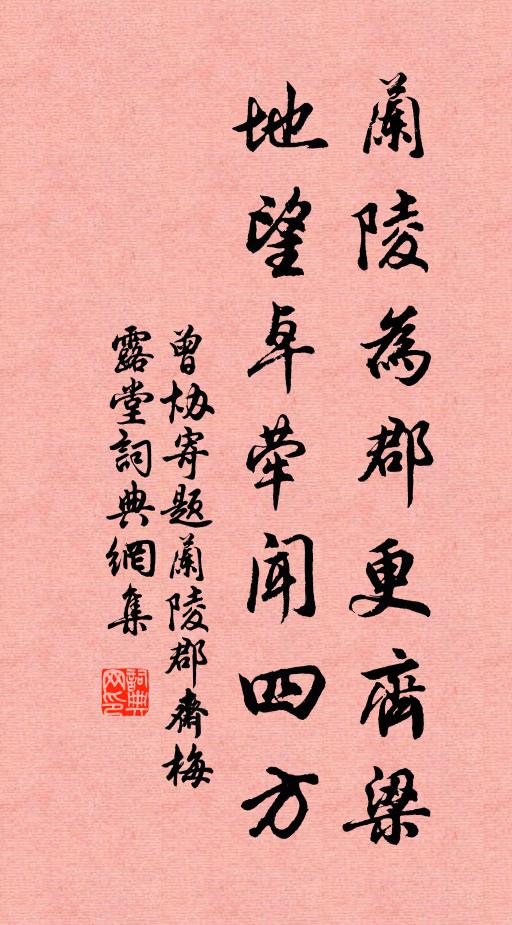 蘭陵為郡更齊梁
地望卓犖聞四方
曾协寄题蘭陵郡齋梅
露堂詞典網集
詞典
网印